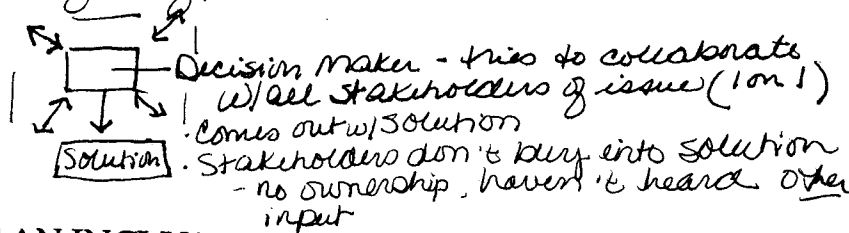 Decision Maker - tries to collaborate
w/all stakeholders of issue (1 on 1)
· comes out w/solution
Solution
· Stakeholders don't buy into solution
- no ownership, haven't heard other
input